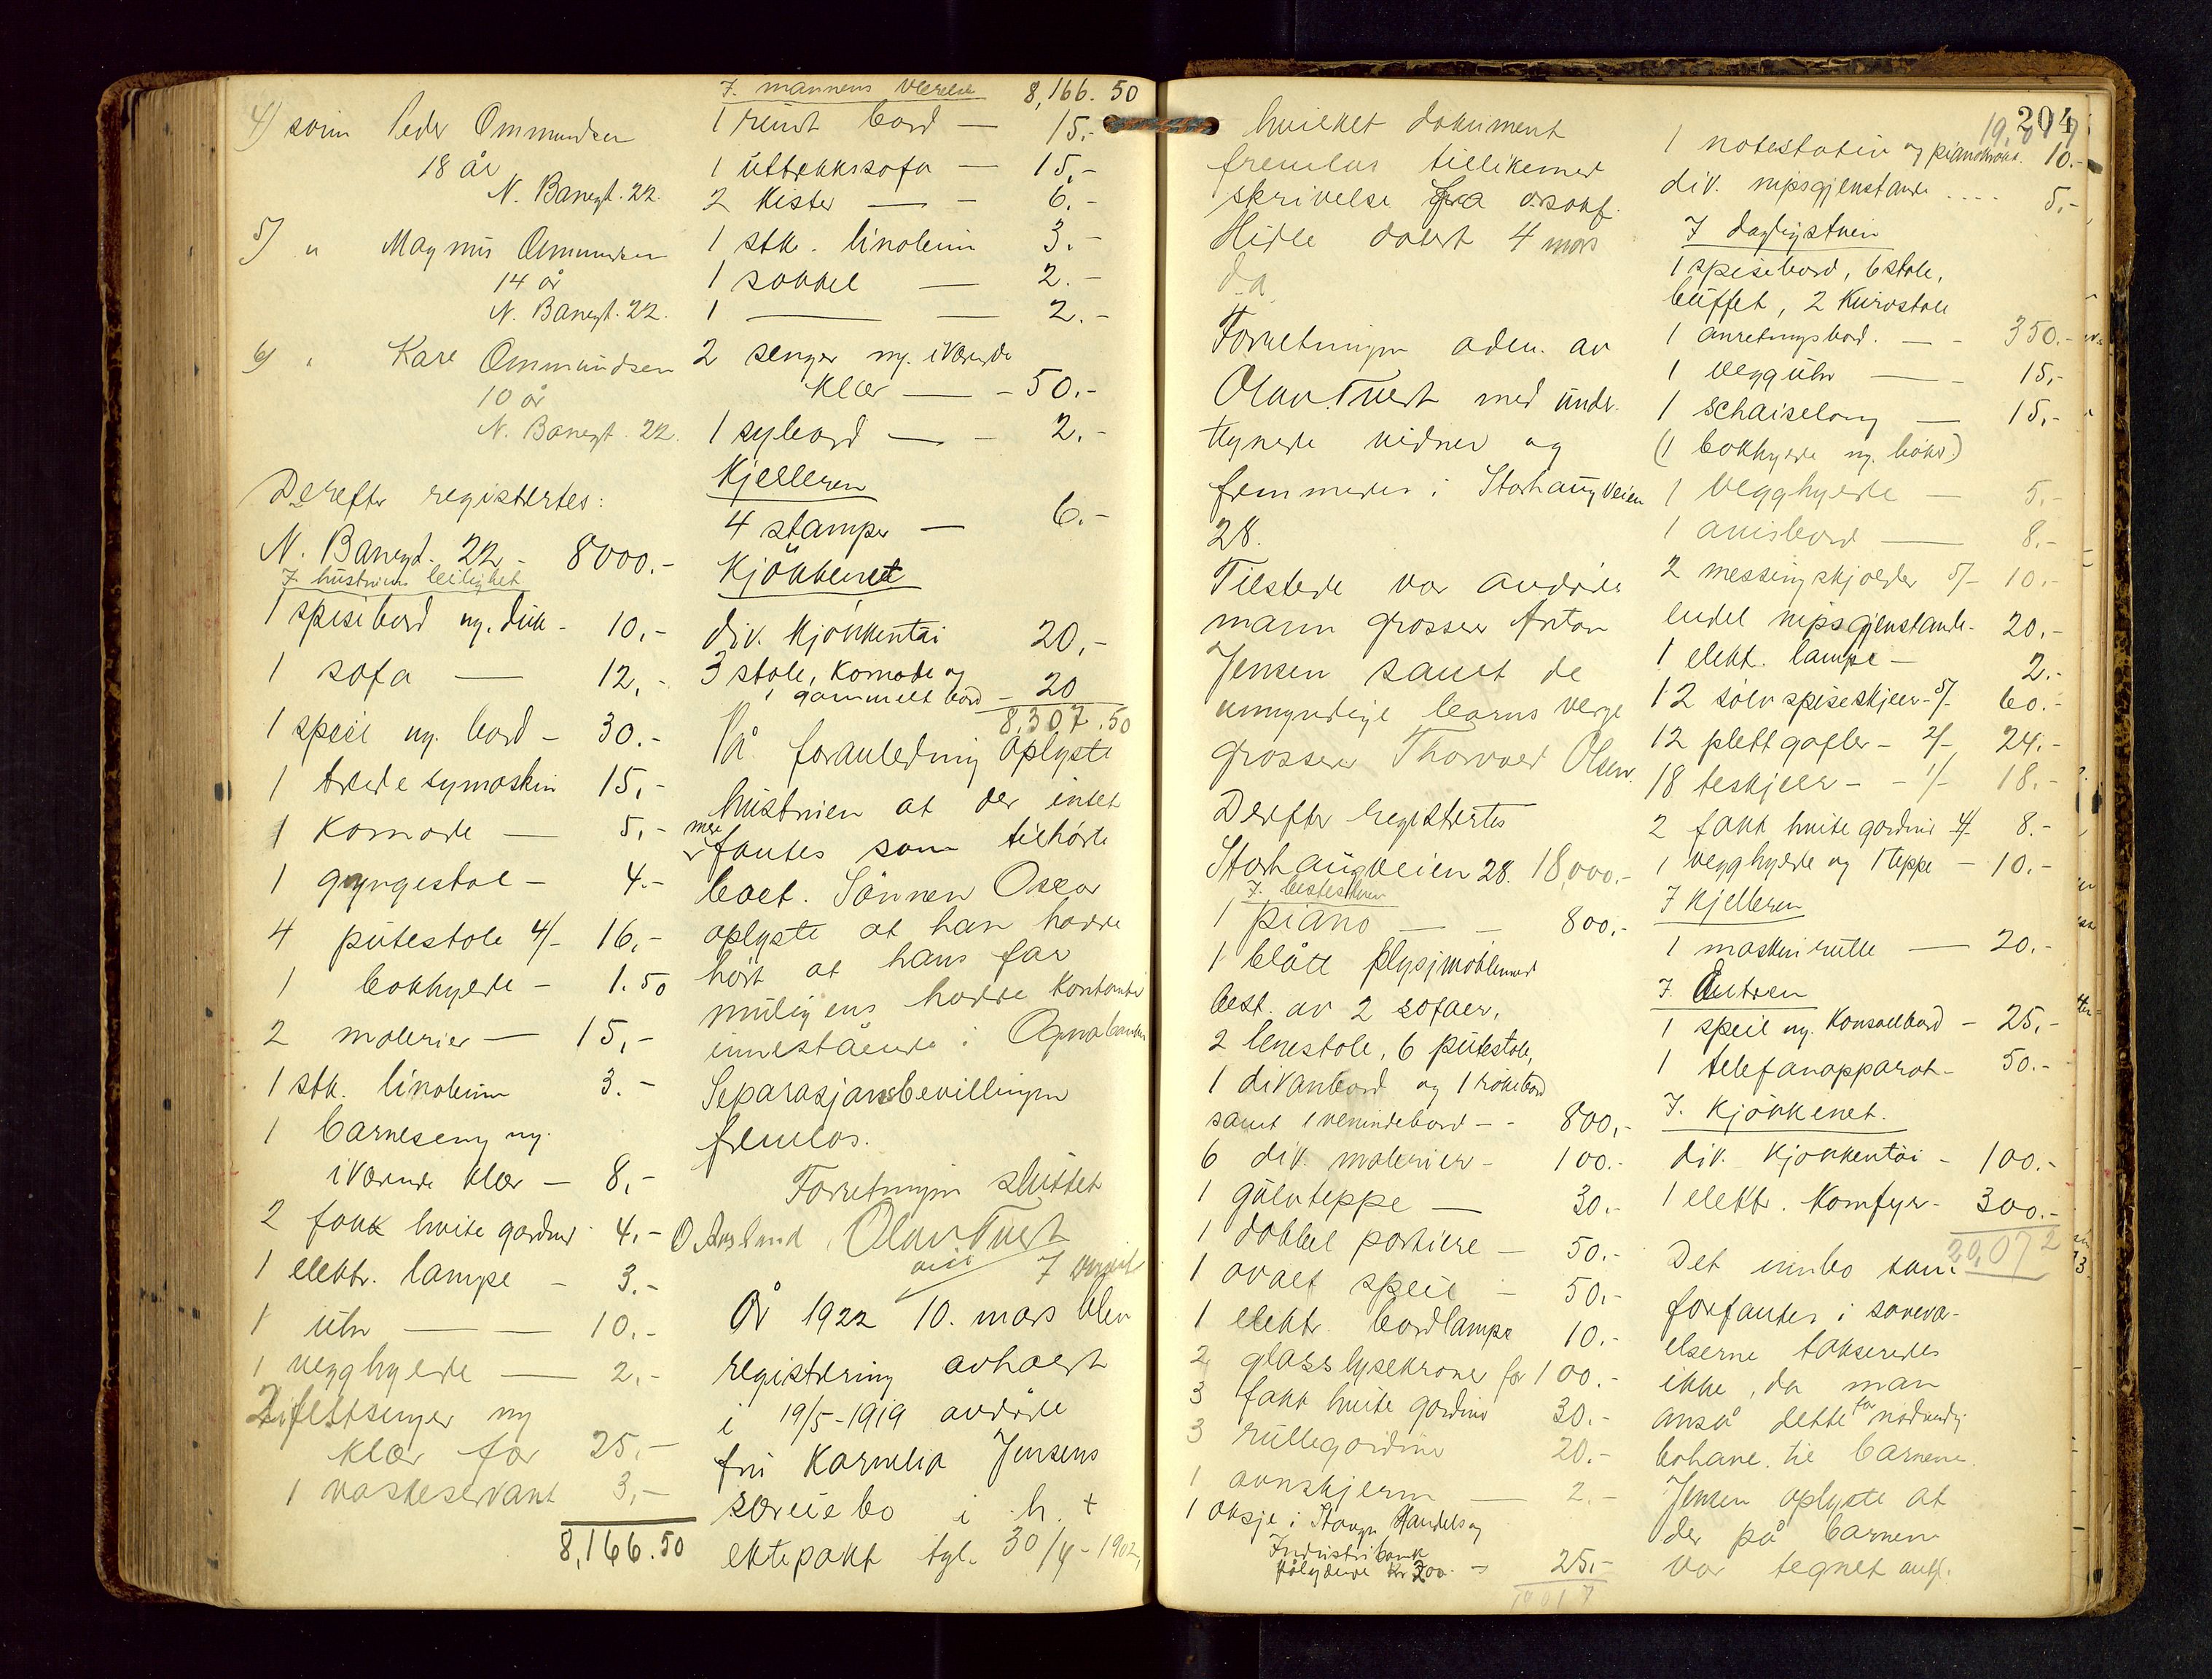 4) sønn Peder Ommundsen
18 år
N. Banegt. 22.
5) " Magnus Ommundsen
14 år
N. Banegt. 22.
6) " Kare Ommundsen
10 år
N. Banegt. 22.
Derefter registertes:
N. Banegt. 22 - 8000.-
I hustruens leilighet
1 spisebord og duk - 10.-
1 sofa — 12.-
1 speil og bord - 30.-
1 træde symaskin 15.-
1 Komode — 5.-
1 gyngestol - 4.-
4 putestole 4/- 16.-
1 bokhylde - 1.50
2 malerier — 15.-
1 stk. linoleum 3.-
1 barneseng og
iværende klær — 8.-
2 fakk hvite gardiner 4.-
1 elektr. lampe - 3.-
1 uhr — — 10.-
1 vegghylde — 2.-
2 feltsenger og
klær for 25.-
1 vaskeservant 3.-
8,166.50
I. mannens værelse 8,166.50
1 rundt bord — 15.-
1 uttrekksofa — 15.-
2 Kister — - 6.-
1 stk. linoleum 3.-
1 sokkel — 2.-
1 — — 2.-
2 senger og iværende
klær — - 50.-
1 sybord — - 2.-
Kjelleren
4 stamper — 6.-
Kjökkenet
div. kjökkentöi 20.-
3 stole, komode og
1 gammelt bord - 20
8,307.50
På foranledning oplyste
hustruen at der intet
mere
fantes som tilhörte
boet. Sønnen Oscar
oplyste at han hadde
hört at hans far
muligens hadde kontanter
innestående i Ognabanken
Separasjonsbevillingen
fremlas.
Forretningen sluttet
O Aarslund Olav Tvert
År 1922 10. mars blev
registrering avholdt
i 19/5-1919 avdöde
fru Karnelia Jensens
særeiebo i h. t
ektepakt tgl. 30/4-1902,
hvilket dokument
fremlas tillikemed
skrivelse fra o.r.sakf.
Hidle datert 4 mars
d.a.
Forretningen aden. av
Olav Tvert med under-
tegnede vidner og
fremmedes i Storhaugveien
28.
Tilstede var avdödes
mann grosserer Anton
Jensen samt de
umyndige barns verge
grosserer Thorvald Olsen.
Derefter registrertes
Storhaugveien 28. 18,000.-
I. bestestuen
1 piano — - 800.-
1 blått plysjmöblement
best. av 2 sofaer,
2 lenestole, 6 putestole,
1 divanbord og 1 rökebord
samt 1 venindebord - - 800.-
6 div. malerier - 100.-
1 gulvteppe — 30.-
1 dobbel portiere — 50.-
1 ovalt speil - 50.-
1 elektr. bordlampe 10.-
2 glasslysekroner for 100.-
3 fakk hvite gardiner 30.-
3 rullegardiner 20.-
1 ovnskjerm — 2.-
1 aksje i Stavgr. Handels og
Industribank
pålydende kr 200.- - 25.-
204
1 notestativ og pianokrakk. 10.-
div. nipsgjenstande .... 5.-
I dagligstuen
1 spisebord, 6 stole,
buffet, 2 kurvstole
1 anretningsbord. — - 350.-
1 veggûhr — - 15.-
1 schaiselong — 15.-
(1 bokhylde og böker)
1 vegghylde — 5.-
1 avisbord — 8.-
2 messingskjolder 5/- 10.-
endel nipsgjenstande - 20.-
1 elekt. lampe — 2.-
12 sölv spiseskjeer - 5/- 60.-
12 plett gafler - 2/- 24.-
18 teskjeer - - 1/- 18.-
2 fakk hvite gardiner 4/- 8.-
1 vegghylde og 1 teppe - 10.-
I kjelleren
1 maskinrulle — 20.-
I. Entreen
1 speil og konsollbord - 25.-
1 telefonapparat - 50.-
I. Kjökkenet.
div. kjökkentöi - 100.-
1 elektr. Komfyr - 300.-
20,072
Det innbo som
forfantes i soveva-
elserne takseredes
ikke, da man
anså dette for nödvendig
bohave til barnene.
Jensen oplyste at
der på barnene
var tegnet